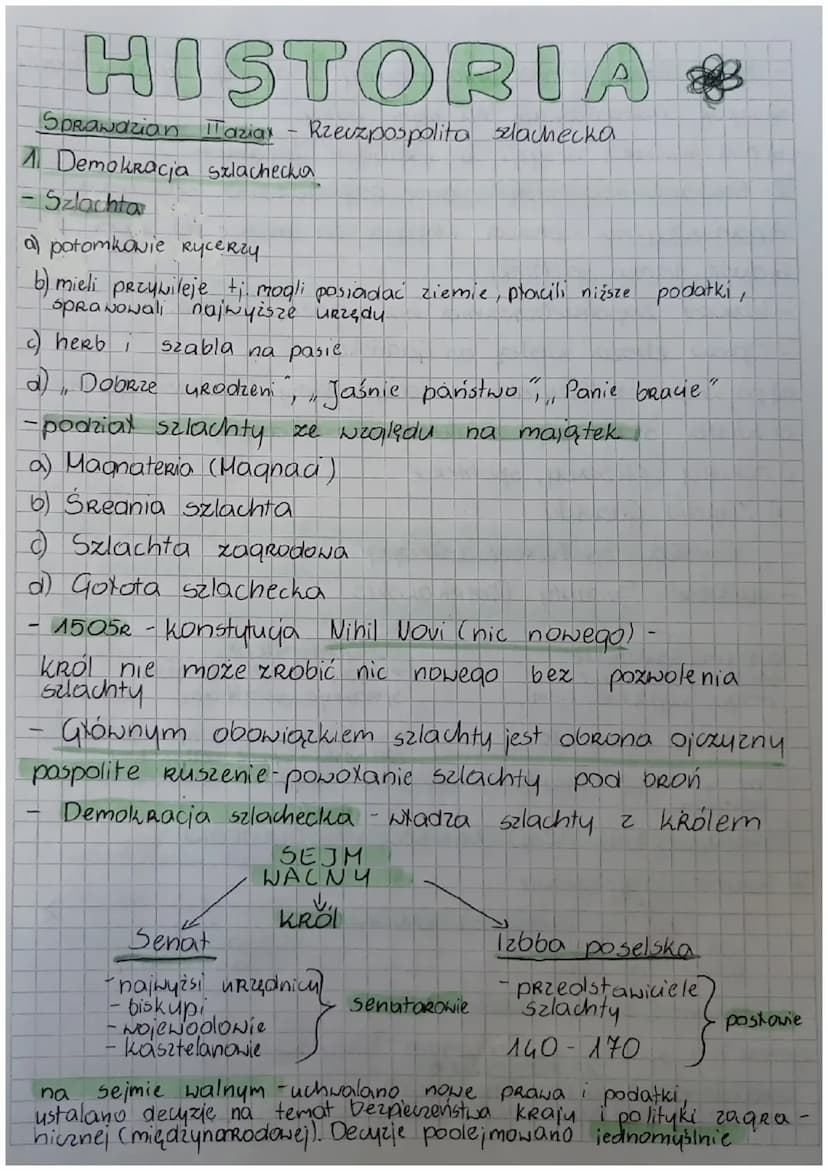 HISTORIA
Sprawdzian II dział - Rzeczpospolita szlachecka
1. Demokracja szlachecka
- Szlachta
a) potomkowie rycerzy
b) mieli przywileje tj. mogli posiadać ziemie, płacili niższe podatki,
sprawowali najwyższe urzędy
c) herb i szabla na pasie
d) „Dobrze urodzeni", „Jaśnie państwo", „Panie bracie"
- podział szlachty ze względu na majątek
a) Magnateria (Magnaci)
b) Średnia szlachta
c) Szlachta zagrodowa
d) Gołota szlachecka
- 1505r - konstytucja Nihil Novi (nic nowego) -
król nie może zrobić nic nowego bez pozwolenia
szlachty
- Głównym obowiązkiem szlachty jest obrona ojczyzny
pospolite ruszenie - powołanie szlachty pod broń
- Demokracja szlachecka - władza szlachty z królem
SEJM
WALNY
KRÓL
Senat
Izbba poselska
- najwyżsi urzędnicy
- biskupi
- wojewodowie
- kasztelanowie
senatorowie
- przedstawiciele
szlachty
140 - 170
posłowie
na sejmie walnym - uchwalano nowe prawa i podatki,
ustalano decyzje na temat bezpieczeństwa kraju i polityki zagra -
nicznej (międzynarodowej). Decyzje podejmowano jednomyślnie